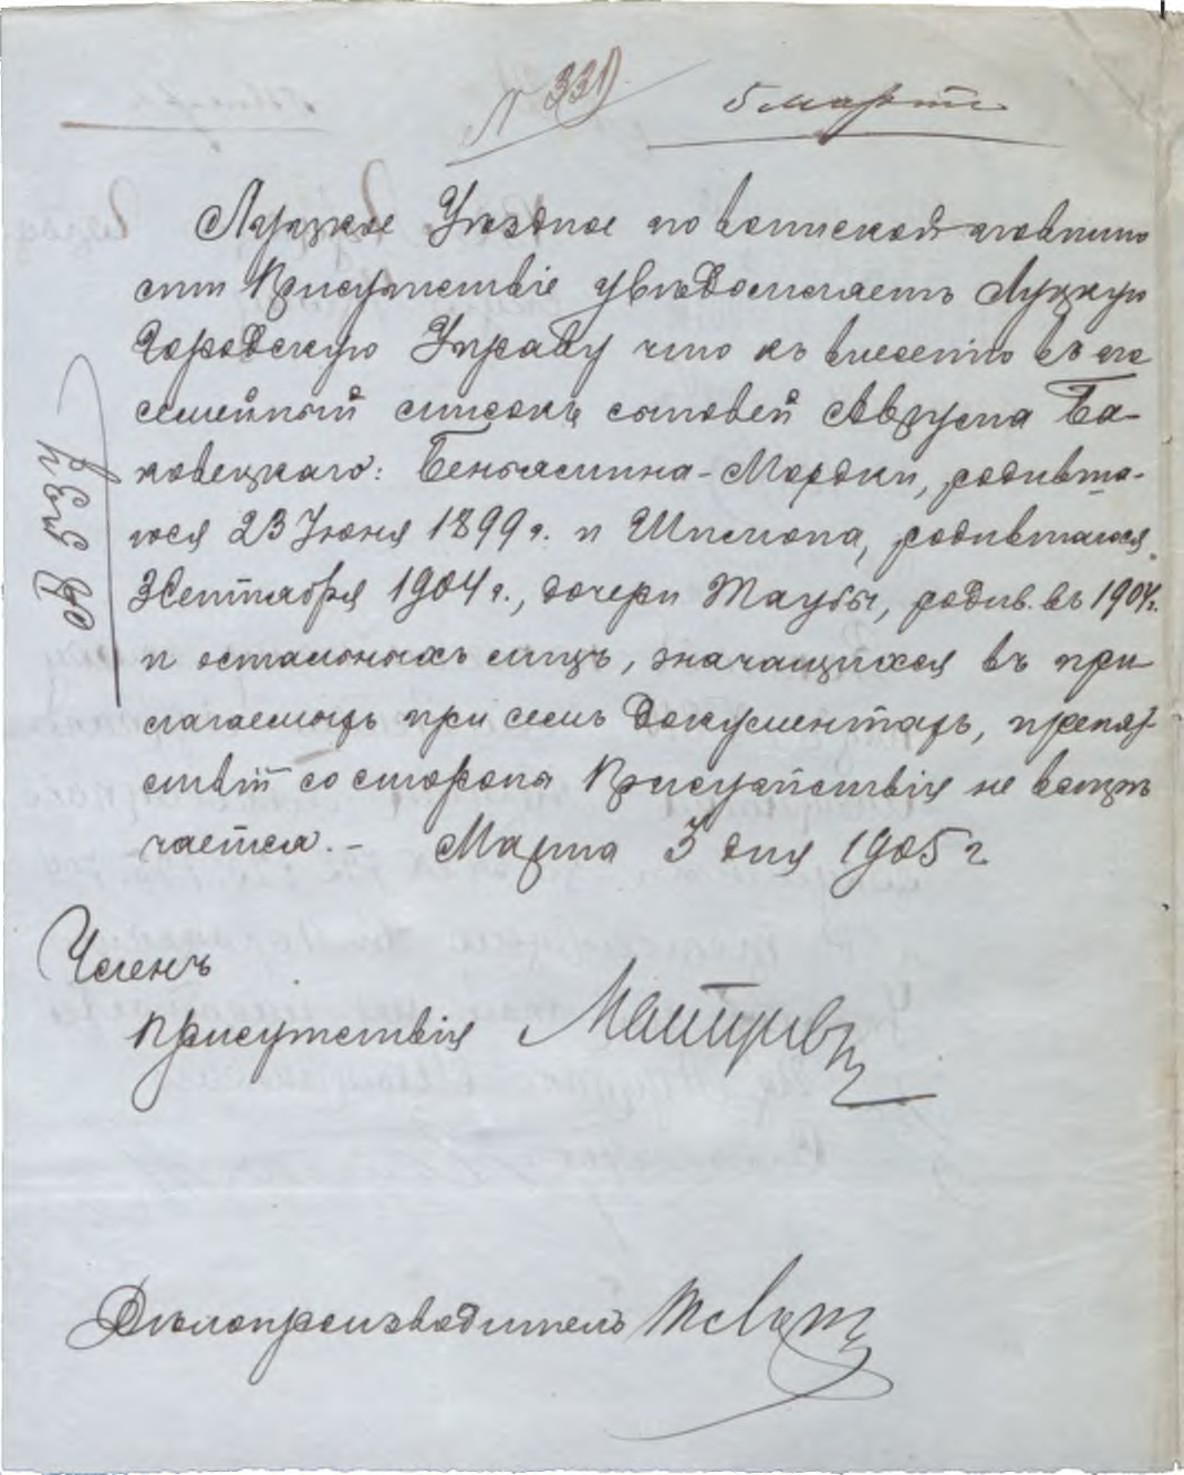 N 331
5 марта
Луцкое Уѣздное по воинской повинно
сти Присутствіе увѣдомляетъ Луцкую
Городскую Управу что къ внесенію въ по
семейный списокъ сыновей Августа Ба-
ковецкаго: Беньямина-Мордки, родивша-
гося 23 Іюня 1899 г. и Шимона, родившагося
3 Сентября 1904 г., дочери Таубы, родив. въ 1904 г.
и остальныхъ лицъ, значащихся въ при
лагаемыхъ при семъ документахъ, препят
ствій со стороны Присутствія не встрѣ
чается.- Марта 3 дня 1905 г
Членъ
Присутствія
Дѣлопроизводитель